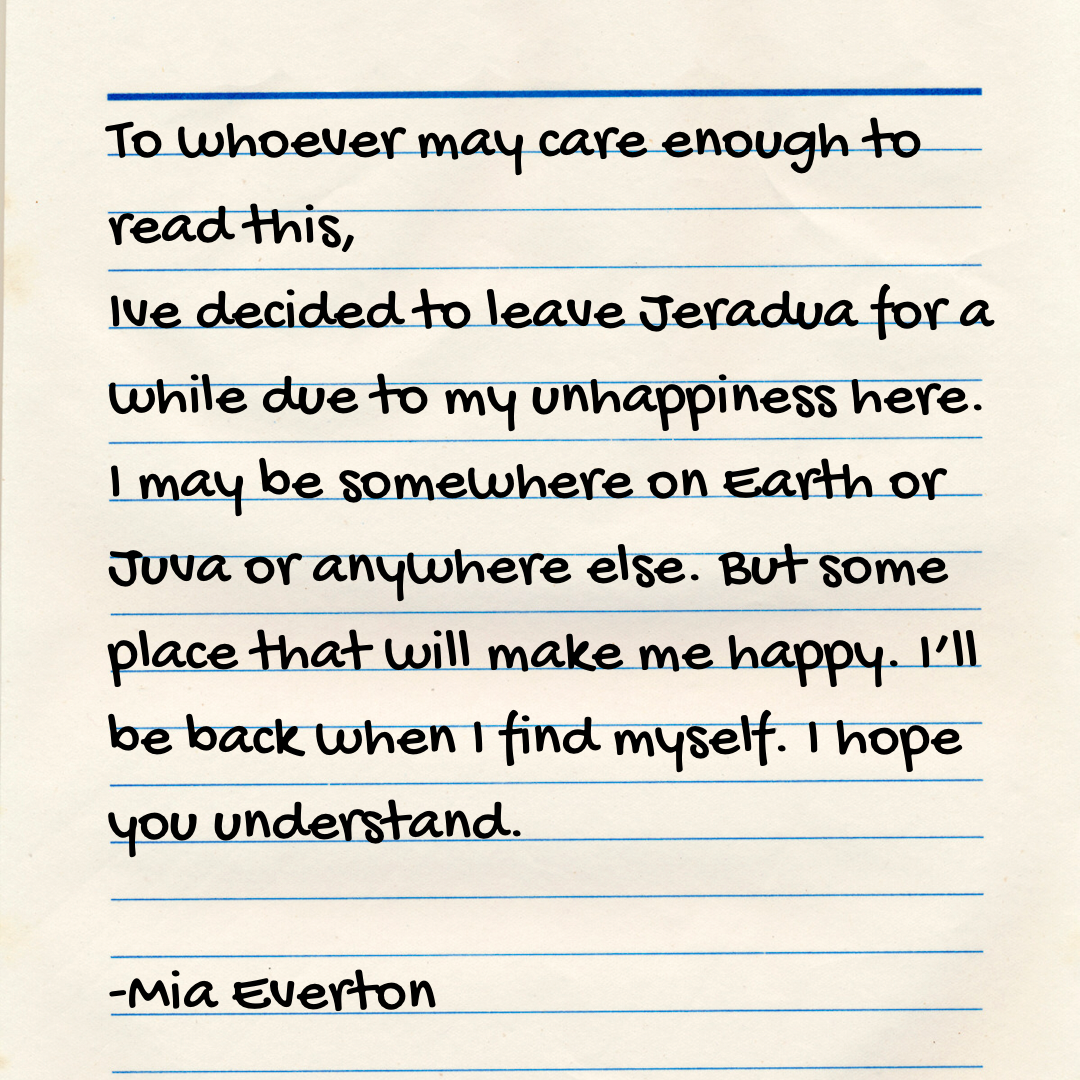 To whoever may care enough to
read this,
Ive decided to leave Jeradua for a
while due to my unhappiness here.
I may be somewhere on Earth or
Juva or anywhere else. But some
place that will make me happy. I'll
be back when I find myself. I hope
you understand.
-Mia Everton